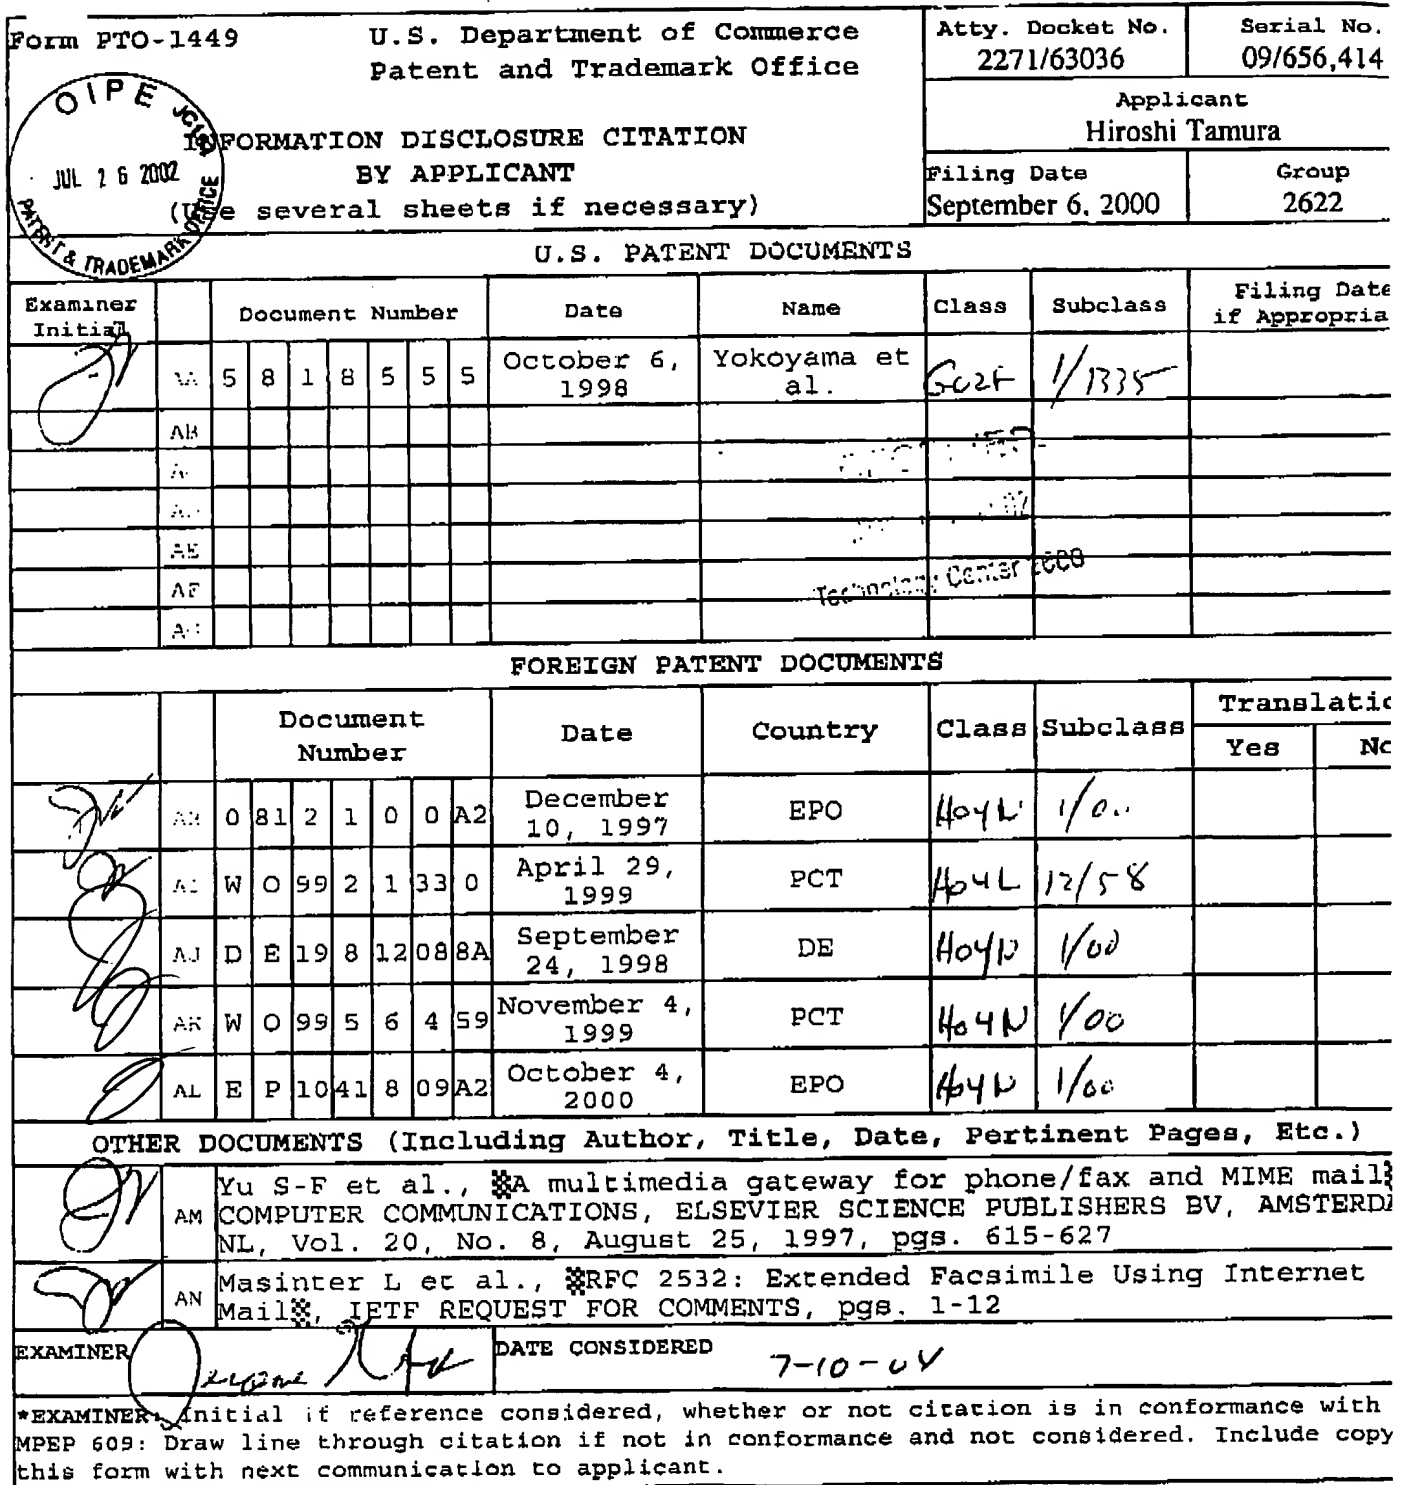 Form PTO-1449
U.S. Department of Commerce
Patent and Trademark Office
Atty. Docket No.
2271/63036
Serial No.
09/656,414
OIPE JC134
JUL 26 2002
PATENT & TRADEMARK OFFICE
INFORMATION DISCLOSURE CITATION
BY APPLICANT
(Use several sheets if necessary)
Applicant
Hiroshi Tamura
Filing Date
September 6, 2000
Group
2622
U.S. PATENT DOCUMENTS
Examiner Initial Document Number Date Name Class Subclass Filing Date if Appropria
AA 5 8 1 8 5 5 5 October 6, 1998 Yokoyama et al. G02F 1/1335
AB
AE
AF
Technology Center 2600
FOREIGN PATENT DOCUMENTS
Document Number Date Country Class Subclass Translatio
Yes No
0 81 2 1 0 0 A2 December 10, 1997 EPO H04N 1/00
AI W O 99 2 1 33 0 April 29, 1999 PCT H04L 12/58
AJ D E 19 8 12 08 8A September 24, 1998 DE H04N 1/00
AK W O 99 5 6 4 59 November 4, 1999 PCT H04N 1/00
AL E P 10 41 8 09 A2 October 4, 2000 EPO H04N 1/00
OTHER DOCUMENTS (Including Author, Title, Date, Pertinent Pages, Etc.)
AM Yu S-F et al., A multimedia gateway for phone/fax and MIME mail
COMPUTER COMMUNICATIONS, ELSEVIER SCIENCE PUBLISHERS BV, AMSTERDA
NL, Vol. 20, No. 8, August 25, 1997, pgs. 615-627
AN Masinter L et al., RFC 2532: Extended Facsimile Using Internet
Mail, IETF REQUEST FOR COMMENTS, pgs. 1-12
EXAMINER
DATE CONSIDERED 7-10-04
*EXAMINER: Initial if reference considered, whether or not citation is in conformance with
MPEP 609: Draw line through citation if not in conformance and not considered. Include copy
this form with next communication to applicant.